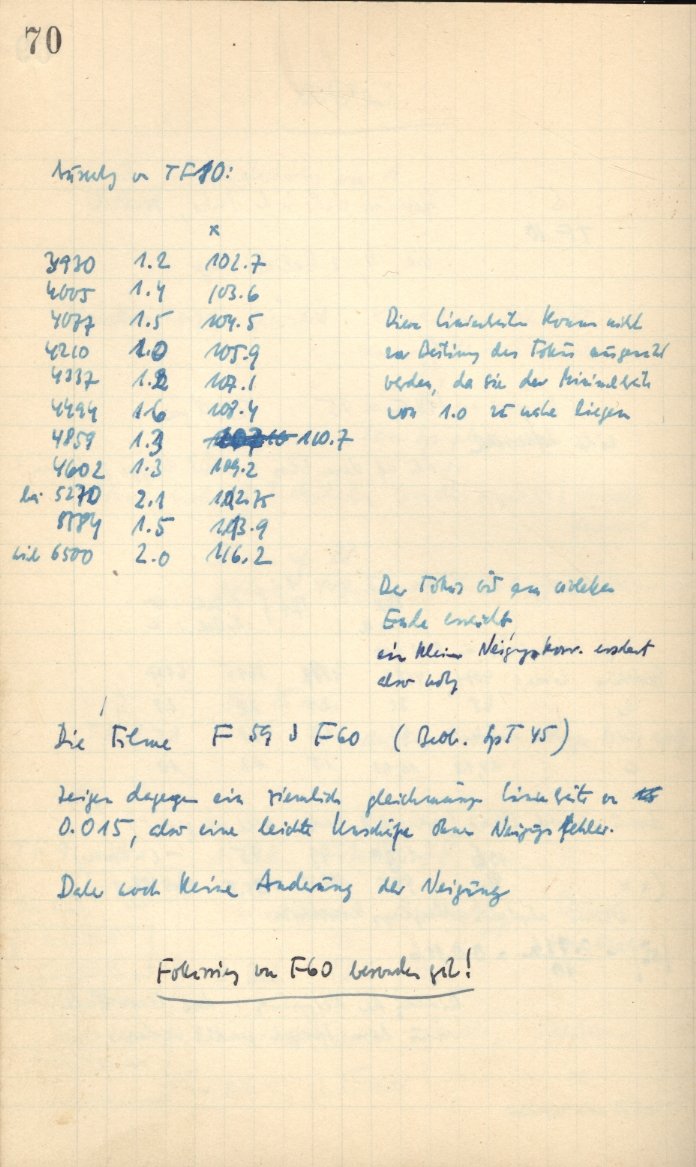 70
von TF10:
x
3930 1.2 102.7
4005 1.4 103.6
4077 1.5 104.5
4210 1.0 105.9
4337 1.2 107.1
4494 1.6 108.4
4859 1.3 110.7
4602 1.3 109.2
bei 5270 2.1 112.75
1.5 113.9
6500 2.0 116.2
Diese Linienbreiten können nicht
zur des Fokus
werden, da sie der
von 1.0 zu nahe liegen
Der Fokus ist am
Ende erreicht,
ein kleine Neigungskorr.
also
Die Filme F 59 u F60 (Beob. SpT 45)
zeigen dagegen ein ziemlich gleichmässige Linienbreite von
0.015, also eine leichte Unschärfe ohne Neigungsfehler.
Daher noch keine Änderung der Neigung
Fokussierung von F60 besonders gut!